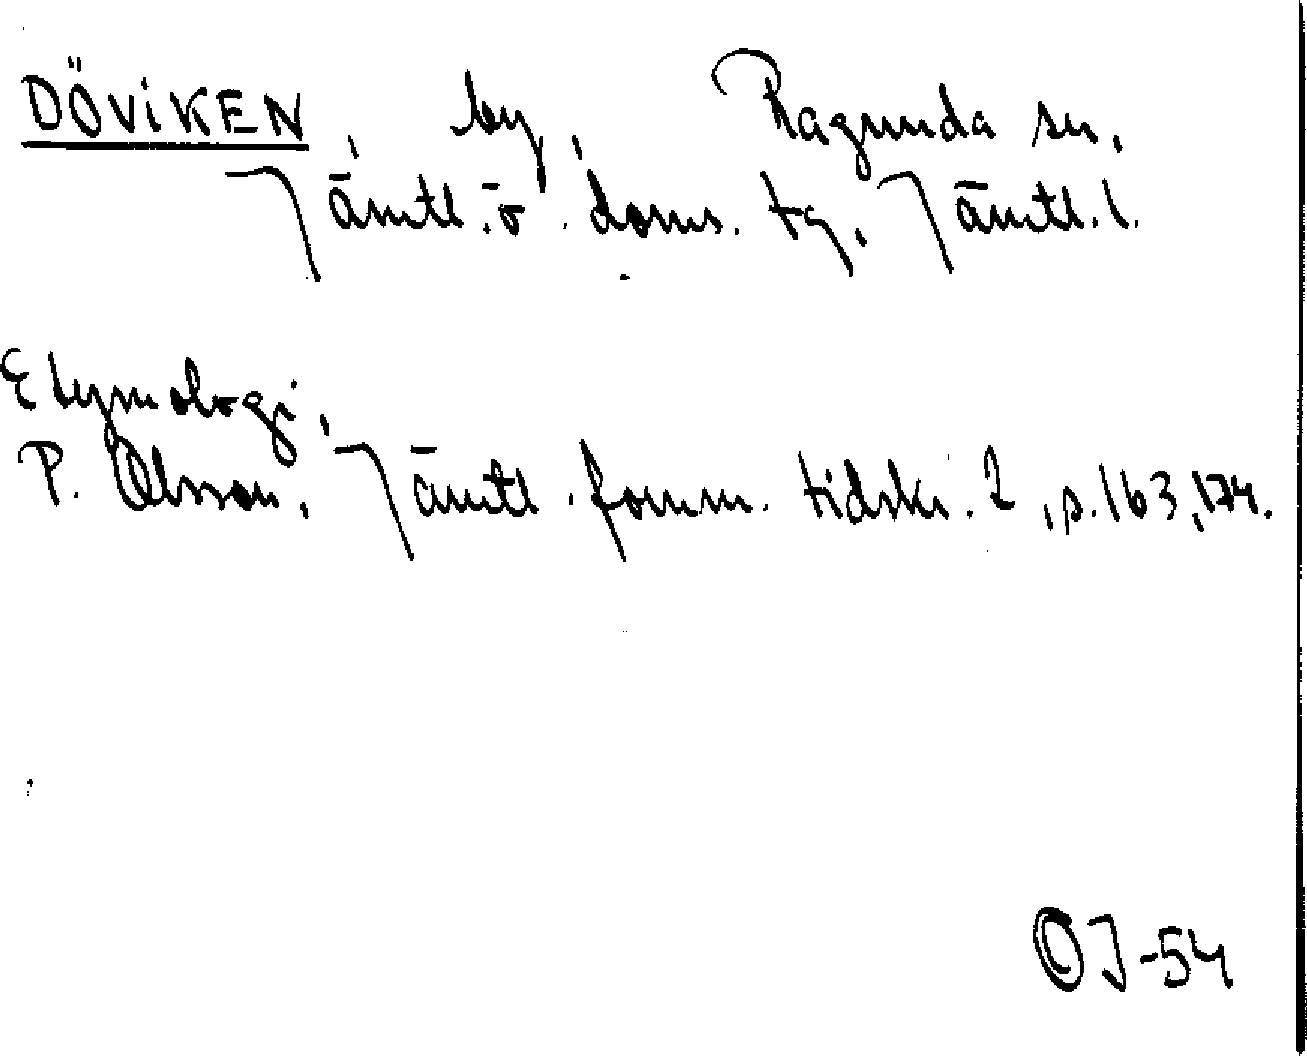 DÖVIKEN, by, Ragunda sn,
Jämtl. ö. doms. tg, Jämtl. l.
Etymologi,
P. Olsson, Jämtl. fornm. tidskr. 2, s. 163, 174.
OJ-54